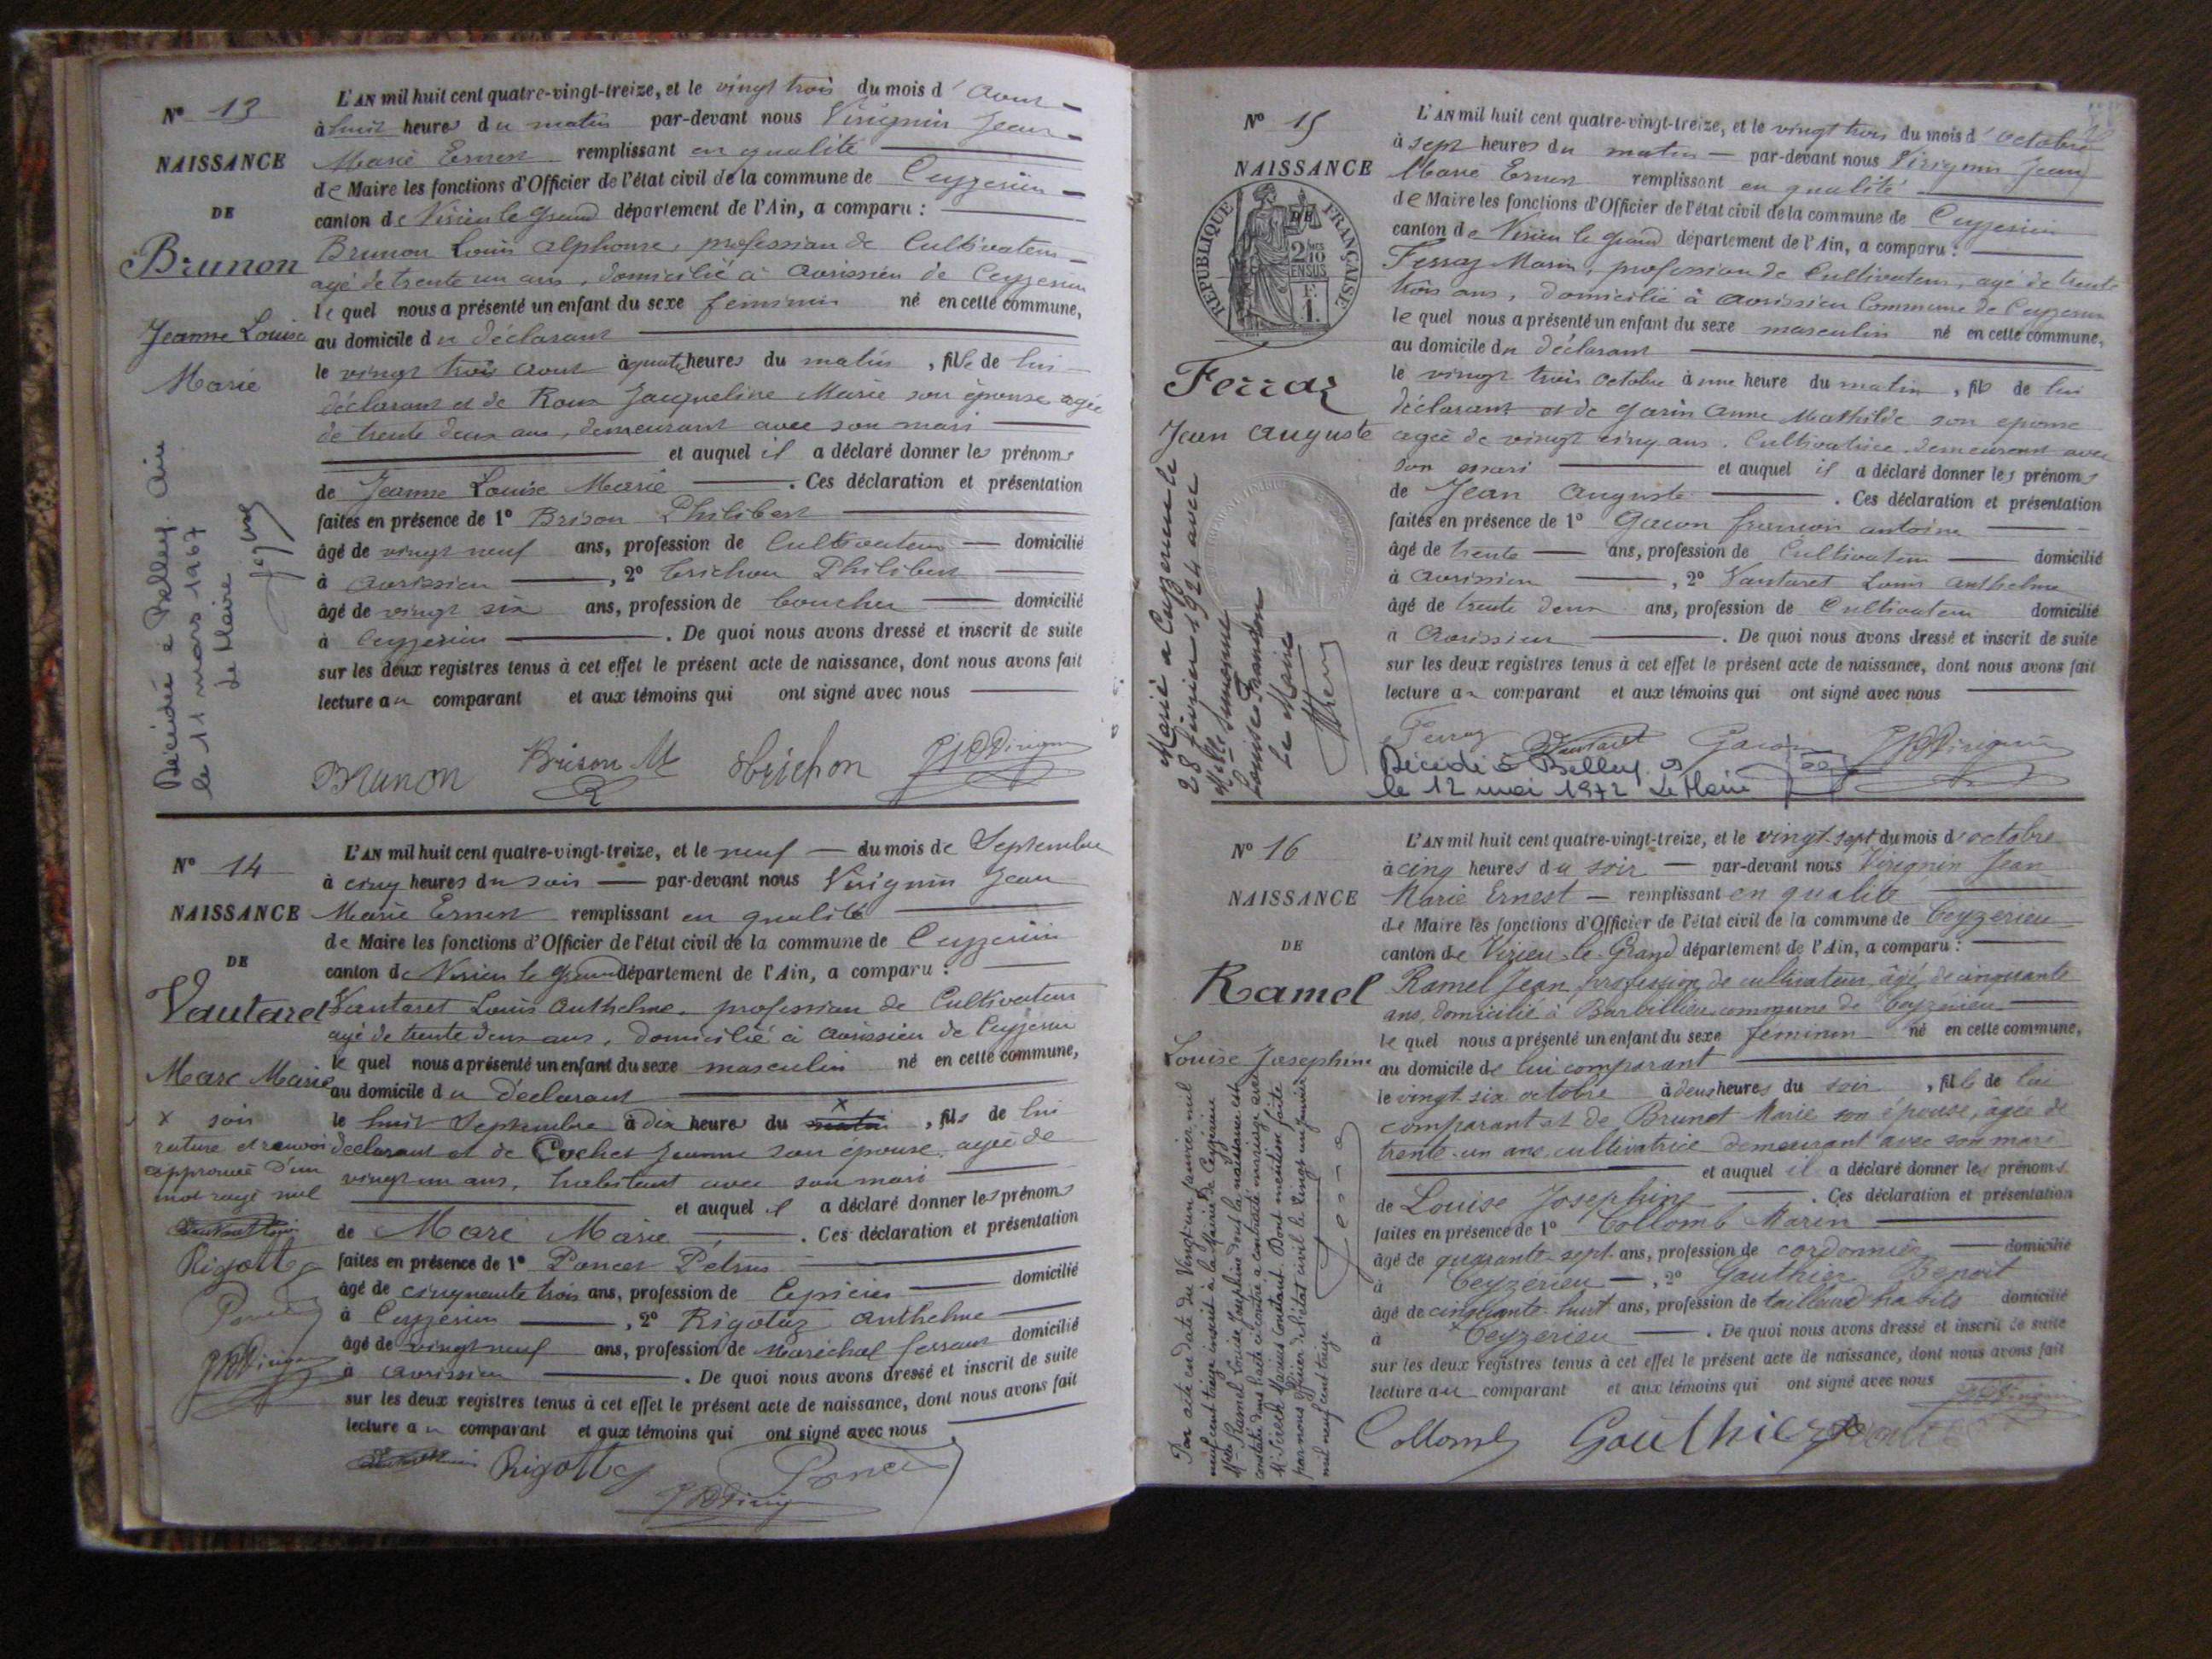 N° 13
NAISSANCE
DE
Brunon
Jeanne Louise
Marie
Décédée à Belley Ain
le 11 mars 1967
Le Maire
L'AN mil huit cent quatre-vingt-treize, et le vingt trois du mois d'Aout
à huit heures du matin par-devant nous Virignin Jean
Marie Ernest remplissant en qualité
de Maire les fonctions d'Officier de l'état civil de la commune de Ceyzerieu
canton de Virieu le Grand département de l'Ain, a comparu :
Brunon Louis Alphonse, profession de Cultivateur
agé de trente un ans, domicilié à Avrissieu de Ceyzerieu
le quel nous a présenté un enfant du sexe feminin né en cette commune,
au domicile du déclarant
le vingt trois Aout à quatre heures du matin, fille de lui
déclarant et de Roux Jacqueline Marie son épouse agée
de trente deux ans, demeurant avec son mari
et auquel il a déclaré donner les prénoms
de Jeanne Louise Marie. Ces déclaration et présentation
faites en présence de 1° Brison Philibert
âgé de vingt neuf ans, profession de Cultivateur domicilié
à Avrissieu, 2° Brichon Philibert
âgé de vingt six ans, profession de boucher domicilié
à Ceyzerieu. De quoi nous avons dressé et inscrit de suite
sur les deux registres tenus à cet effet le présent acte de naissance, dont nous avons fait
lecture au comparant et aux témoins qui ont signé avec nous
Brunon Brison M Brichon
N° 14
NAISSANCE
DE
Vautaret
Marc Marie
x soir
rature et renvoi
approuvé d'un
mot rayé nul
Rigottaz
Poncet
L'AN mil huit cent quatre-vingt-treize, et le neuf du mois de Septembre
à cinq heures du soir par-devant nous Virignin Jean
Marie Ernest remplissant en qualité
de Maire les fonctions d'Officier de l'état civil de la commune de Ceyzerieu
canton de Virieu le Grand département de l'Ain, a comparu :
Vautaret Louis Anthelme, profession de Cultivateur
agé de trente deux ans, domicilié à Avrissieu de Ceyzerieu
le quel nous a présenté un enfant du sexe masculin né en cette commune,
au domicile du Déclarant
le huit Septembre à dix heures du matin x, fils de lui
déclarant et de Cochet Jeanne son épouse, agée de
vingt un ans, habitant avec son mari
et auquel il a déclaré donner les prénoms
de Marc Marie. Ces déclaration et présentation
faites en présence de 1° Poncet Petrus
âgé de cinquante trois ans, profession de Epicier domicilié
à Ceyzerieu, 2° Rigotaz Anthelme
âgé de vingt neuf ans, profession de Maréchal ferrant domicilié
à Avrissieu. De quoi nous avons dressé et inscrit de suite
sur les deux registres tenus à cet effet le présent acte de naissance, dont nous avons fait
lecture au comparant et aux témoins qui ont signé avec nous
Rigottaz Poncet
N° 15
NAISSANCE
DE
RÉPUBLIQUE FRANÇAISE
2/10
EN SUS
1 F.
Ferraz
Jean Auguste
Marié à Ceyzerieu le
28 février 1924 avec
Melle Simonne
Louise Grandon
Le Maire
L'AN mil huit cent quatre-vingt-treize, et le vingt trois du mois d'Octobre
à sept heures du matin par-devant nous Virignin Jean
Marie Ernest remplissant en qualité
de Maire les fonctions d'Officier de l'état civil de la commune de Ceyzerieu
canton de Virieu le Grand département de l'Ain, a comparu :
Ferraz Marin, profession de Cultivateur, agé de trente
trois ans, domicilié à Avrissieu Commune de Ceyzerieu
le quel nous a présenté un enfant du sexe masculin né en cette commune,
au domicile du déclarant
le vingt trois Octobre à une heure du matin, fils de lui
déclarant et de Garin Anne Mathilde son epouse
agée de vingt cinq ans, Cultivatrice demeurant avec
son mari et auquel il a déclaré donner les prénoms
de Jean Auguste. Ces déclaration et présentation
faites en présence de 1° Gacon françois antoine
âgé de trente ans, profession de Cultivateur domicilié
à Avrissieu, 2° Vautaret Louis Anthelme
âgé de trente deux ans, profession de Cultivateur domicilié
à Avrissieu. De quoi nous avons dressé et inscrit de suite
sur les deux registres tenus à cet effet le présent acte de naissance, dont nous avons fait
lecture au comparant et aux témoins qui ont signé avec nous
Ferraz Vautaret Gacon
Décédé à Belley
le 12 mai 1972 Le Maire
N° 16
NAISSANCE
DE
Ramel
Louise Josephine
Par acte en date du Vingt-un janvier mil
neuf cent treize inscrit à la Mairie de Ceyzerieu
Melle Ramel Louise Josephine dont la naissance est
constatée dans l'acte ci-contre a contracté mariage avec
Mr Marius Constant. Dont mention faite
par nous officier de l'état civil le vingt un janvier
mil neuf cent treize
L'AN mil huit cent quatre-vingt-treize, et le vingt-sept du mois d'octobre
à cinq heures du soir par-devant nous Virignin Jean
Marie Ernest remplissant en qualité
de Maire les fonctions d'Officier de l'état civil de la commune de Ceyzerieu
canton de Virieu-le-Grand département de l'Ain, a comparu :
Ramel Jean, profession de cultivateur, âgé de cinquante
ans, domicilié à Barbillieu commune de Ceyzerieu
le quel nous a présenté un enfant du sexe feminin né en cette commune,
au domicile de lui comparant
le vingt six octobre à deux heures du soir, fille de lui
comparant et de Brunet Marie son épouse, âgée de
trente-un ans cultivatrice demeurant avec son mari
et auquel il a déclaré donner les prénoms
de Louise Josephine. Ces déclaration et présentation
faites en présence de 1° Collomb Marin
âgé de quarante-sept ans, profession de cordonnier domicilié
à Ceyzerieu, 2° Gauthier Benoit
âgé de cinquante-huit ans, profession de tailleur d'habits domicilié
à Ceyzerieu. De quoi nous avons dressé et inscrit de suite
sur les deux registres tenus à cet effet le présent acte de naissance, dont nous avons fait
lecture au comparant et aux témoins qui ont signé avec nous
Collomb Gauthier